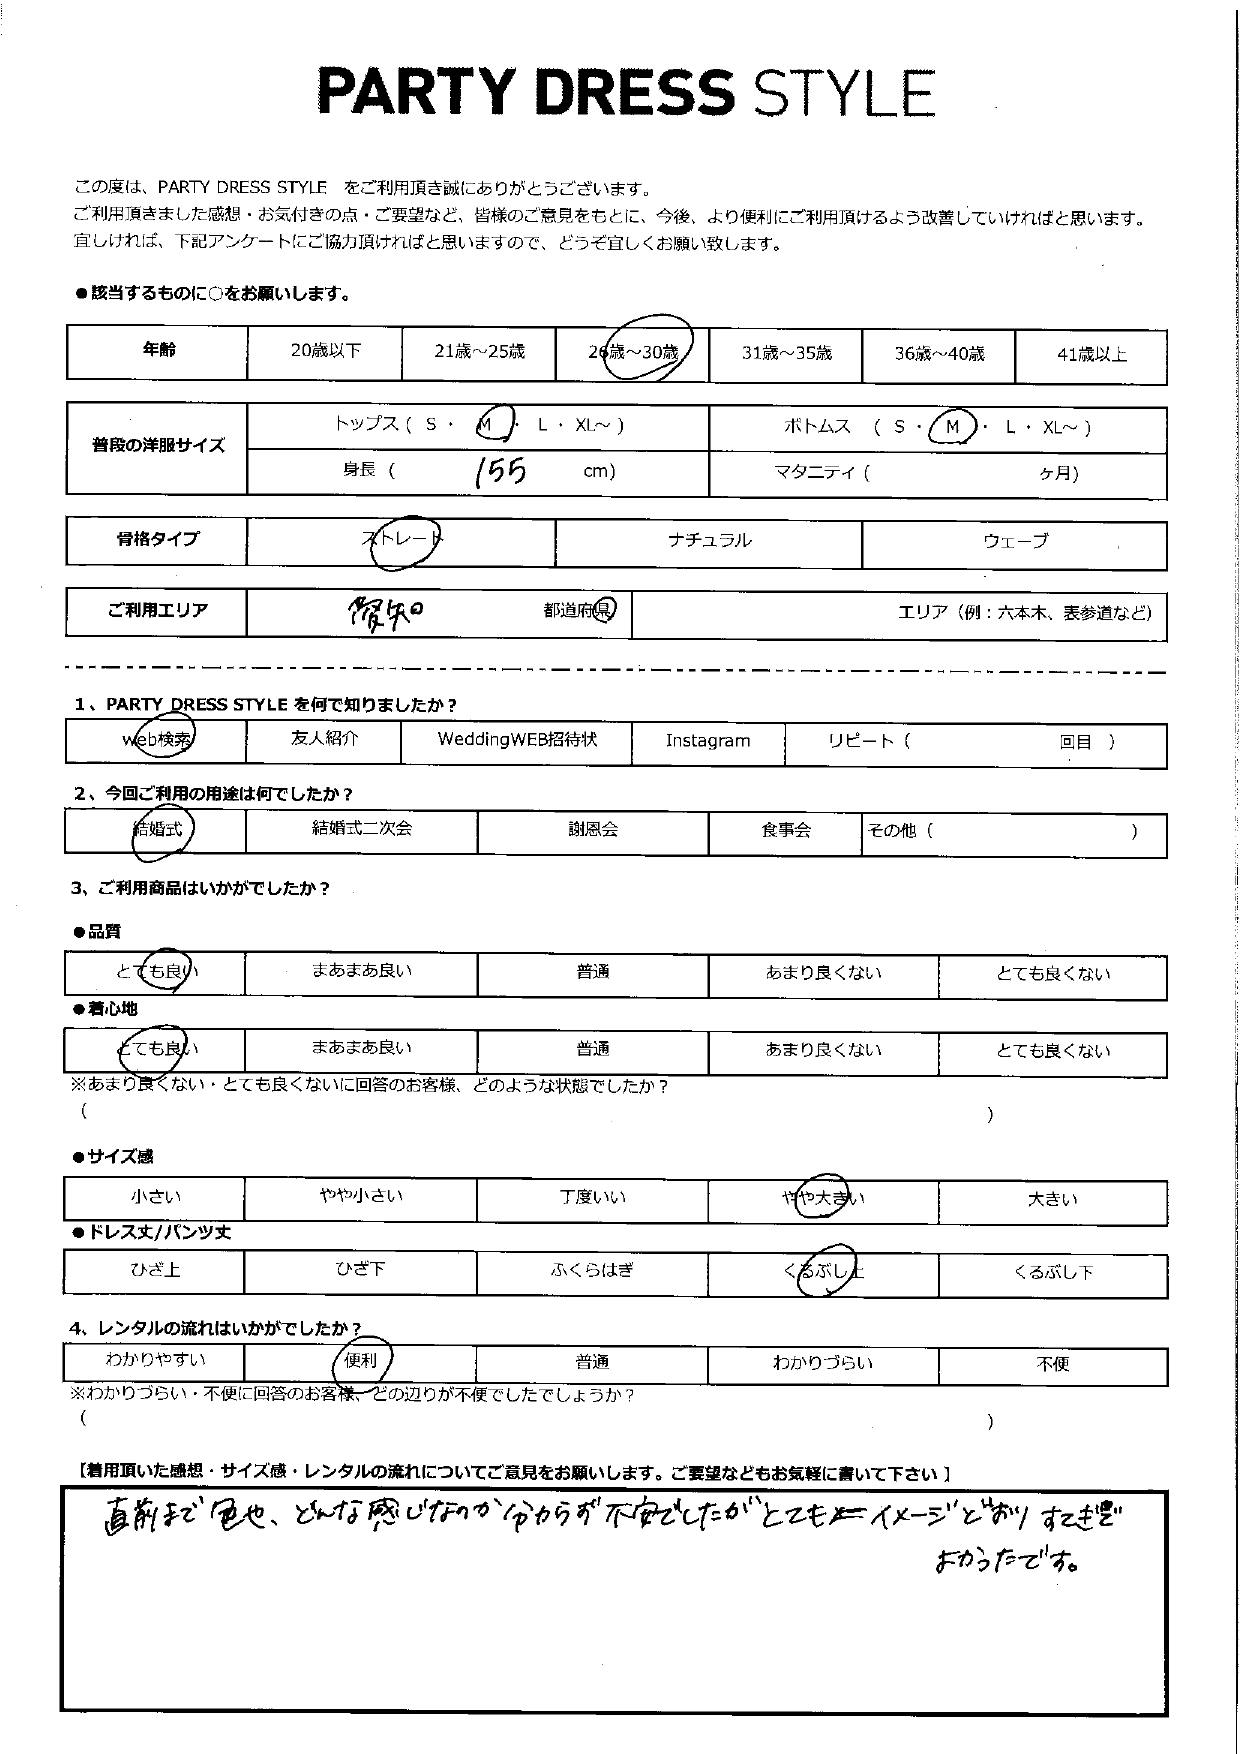 PARTY DRESS STYLE
この度は、PARTY DRESS STYLE をご利用頂き誠にありがとうございます。
ご利用頂きました感想・お気付きの点・ご要望など、皆様のご意見をもとに、今後、より便利にご利用頂けるよう改善していければと思います。
宜しければ、下記アンケートにご協力頂ければと思いますので、どうぞ宜しくお願い致します。
●該当するものに○をお願いします。
年齢 20歳以下 21歳～25歳 26歳～30歳 31歳～35歳 36歳～40歳 41歳以上
普段の洋服サイズ トップス ( S ・ M ・ L ・ XL～ ) ボトムス ( S ・ M ・ L ・ XL～ )
身長 ( 155 cm) マタニティ ( ヶ月)
骨格タイプ ストレート ナチュラル ウェーブ
ご利用エリア 愛知 都道府県 エリア（例：六本木、表参道など）
1、PARTY DRESS STYLE を何で知りましたか？
web検索 友人紹介 WeddingWEB招待状 Instagram リピート ( 回目 )
2、今回ご利用の用途は何でしたか？
結婚式 結婚式二次会 謝恩会 食事会 その他 ( )
3、ご利用商品はいかがでしたか？
●品質
とても良い まあまあ良い 普通 あまり良くない とても良くない
●着心地
とても良い まあまあ良い 普通 あまり良くない とても良くない
※あまり良くない・とても良くないに回答のお客様、どのような状態でしたか？
( )
●サイズ感
小さい やや小さい 丁度いい やや大きい 大きい
●ドレス丈/パンツ丈
ひざ上 ひざ下 ふくらはぎ くるぶし上 くるぶし下
4、レンタルの流れはいかがでしたか？
わかりやすい 便利 普通 わかりづらい 不便
※わかりづらい・不便に回答のお客様、どの辺りが不便でしたでしょうか？
( )
【着用頂いた感想・サイズ感・レンタルの流れについてご意見をお願いします。ご要望などもお気軽に書いて下さい】
直前まで色や、どんな感じなのか分からず不安でしたがとても イメージどおり すてきで
よかったです。